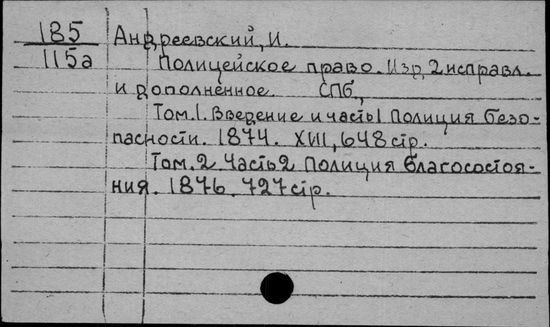 185 Андреевский, И.
115а Полицейское право. Изд. 2 исправл.
и дополненное. СПб.,
Том. 1. Введение и часть 1 Полиция безо-
пасности. 1874. XIII, 648 стр.
Том. 2. Часть 2 Полиция благосостоя-
ния. 1876. 727 стр.